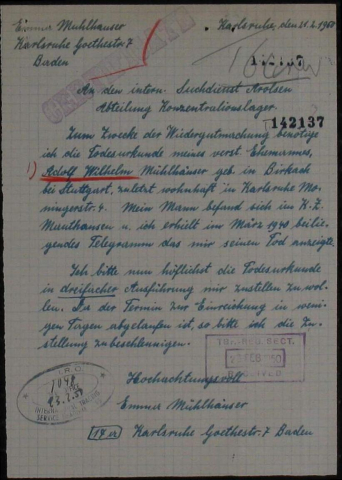 Emma Mühlhäuser
Karlsruhe Goethestr. 7
Baden
Karlsruhe, den 21.2.1950
142137
An den intern. Suchdienst Arolsen
Abteilung Konzentrationslager.
142137
Zum Zwecke der Wiedergutmachung benötige
ich die Todesurkunde meines verst. Ehemannes,
1) Adolf Wilhelm Mühlhäuser geb. in Birkach
bei Stuttgart, zuletzt wohnhaft in Karlsruhe Mo-
ningerstr. 4. Mein Mann befand sich im K.Z.
Mauthausen u. ich erhielt im März 1940 beilie-
gendes Telegramm das mir seinen Tod anzeigte.
Ich bitte nun höflichst die Todesurkunde
in dreifacher Ausführung mir zustellen zu wol-
len. Da der Termin zur Einreichung in weni-
gen Tagen abgelaufen ist, so bitte ich die Zu-
stellung zu beschleunigen.
Hochachtungsvoll
Emma Mühlhäuser
Karlsruhe Goethestr. 7 Baden